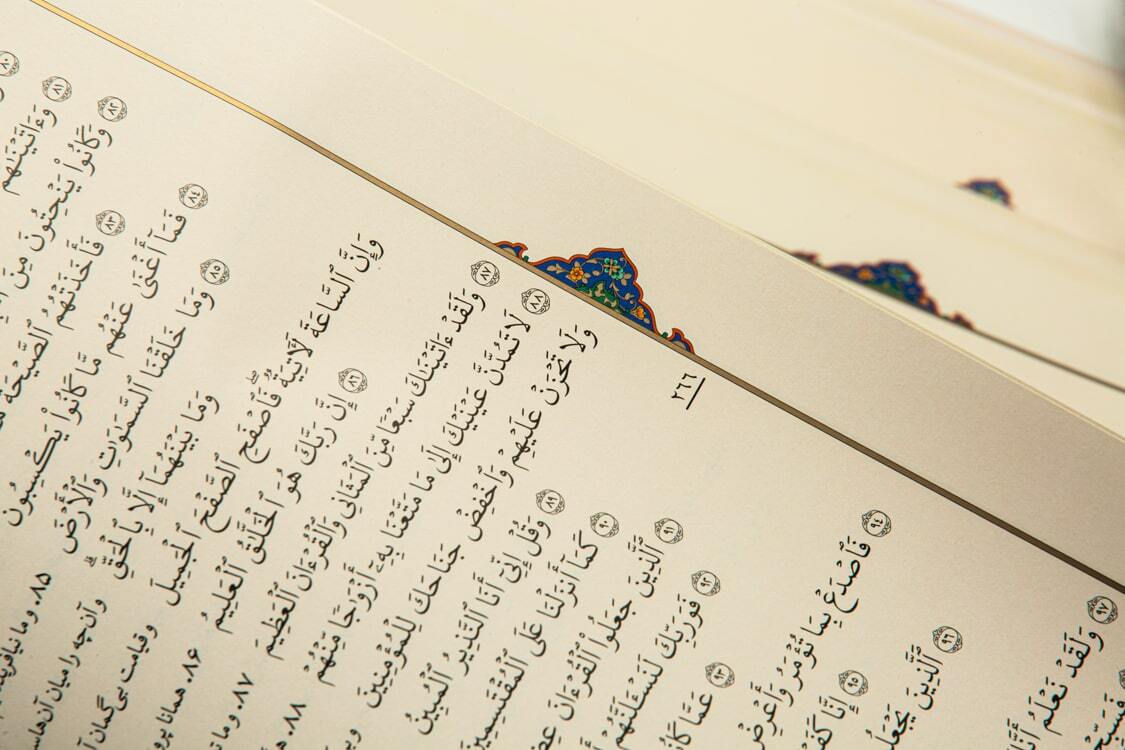 ٨٠
٨١ وَءَاتَيْنَٰهُمْ
٨٢ وَكَانُوا۟ يَنْحِتُونَ مِنَ
٨٣ فَأَخَذَتْهُمُ ٱلصَّيْحَةُ
٨٤ فَمَآ أَغْنَىٰ عَنْهُم مَّا كَانُوا۟ يَكْسِبُونَ
٨٥ وَمَا خَلَقْنَا ٱلسَّمَٰوَٰتِ وَٱلْأَرْضَ
وَمَا بَيْنَهُمَآ إِلَّا بِٱلْحَقِّ ۗ
وَإِنَّ ٱلسَّاعَةَ لَءَاتِيَةٌ ۖ فَٱصْفَحِ ٱلصَّفْحَ ٱلْجَمِيلَ
٨٦ إِنَّ رَبَّكَ هُوَ ٱلْخَلَّٰقُ ٱلْعَلِيمُ
٨٧ وَلَقَدْ ءَاتَيْنَٰكَ سَبْعًا مِّنَ ٱلْمَثَانِى وَٱلْقُرْءَانَ ٱلْعَظِيمَ
٨٨ لَا تَمُدَّنَّ عَيْنَيْكَ إِلَىٰ مَا مَتَّعْنَا بِهِۦٓ أَزْوَٰجًا مِّنْهُمْ
وَلَا تَحْزَنْ عَلَيْهِمْ وَٱخْفِضْ جَنَاحَكَ لِلْمُؤْمِنِينَ
٨٩ وَقُلْ إِنِّىٓ أَنَا ٱلنَّذِيرُ ٱلْمُبِينُ
٩٠ كَمَآ أَنزَلْنَا عَلَى ٱلْمُقْتَسِمِينَ
٩١ ٱلَّذِينَ جَعَلُوا۟ ٱلْقُرْءَانَ
٩٢ فَوَرَبِّكَ لَنَسْـَٔلَنَّهُمْ
٩٣ عَمَّا
٩٤ فَٱصْدَعْ بِمَا تُؤْمَرُ وَأَعْرِضْ
٩٥ إِنَّا
٩٦ ٱلَّذِينَ
٩٧ وَلَقَدْ نَعْلَمُ
٢٦٦
۸۵. و ما
و آن‌چه را میان آن‌هاست
و قیامت بی‌گمان
۸۶. همانا
۸۷. و ما
۸۸.